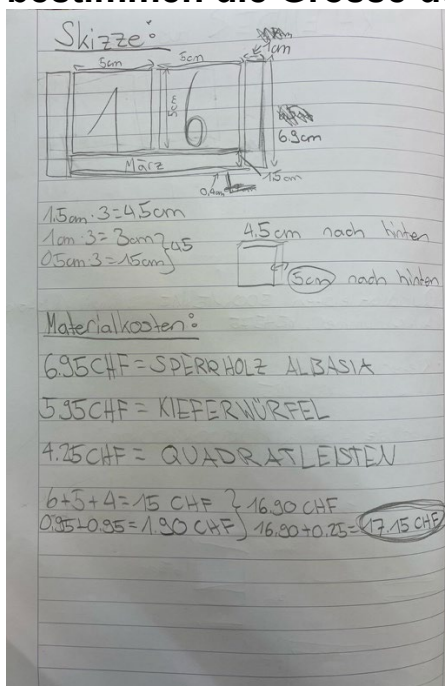 Skizze:
5cm 5cm 1cm
5cm
1 6
6.9cm
März
1.5cm
0,4cm
1.5cm · 3 = 4.5cm
1cm · 3 = 3cm } 4.5
0.5cm · 3 = 1.5cm
4.5cm nach hinten
5cm nach hinten
Materialkosten:
6.95CHF = SPERRHOLZ ALBASIA
5.95CHF = KIEFERWÜRFEL
4.25CHF = QUADRATLEISTEN
6+5+4=15 CHF } 16.90 CHF
0.95+0.95=1.90 CHF } 16.90+0.25=17.15 CHF